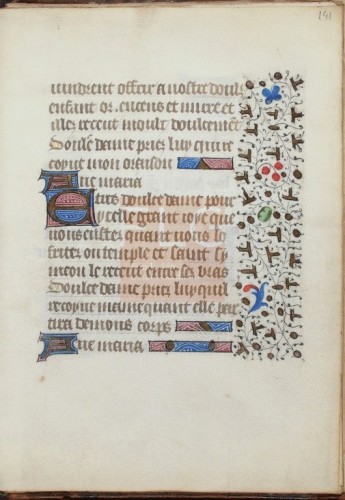 191
vindrent offrir a nostre doulz
enfant or. encens et mirre et
il les recent moult doulcemet
Doulce dame pries luy quil re
coyue mon oroison
Aue maria
Tres doulce dame pour
ycelle grant ioye que
vous eustes quant vous lo
fristes ou temple et saint sy
meon le recent entre ses bras
Doulce dame pries luy quil
recoyue mame quant elle par
tira de mons corps
Aue maria